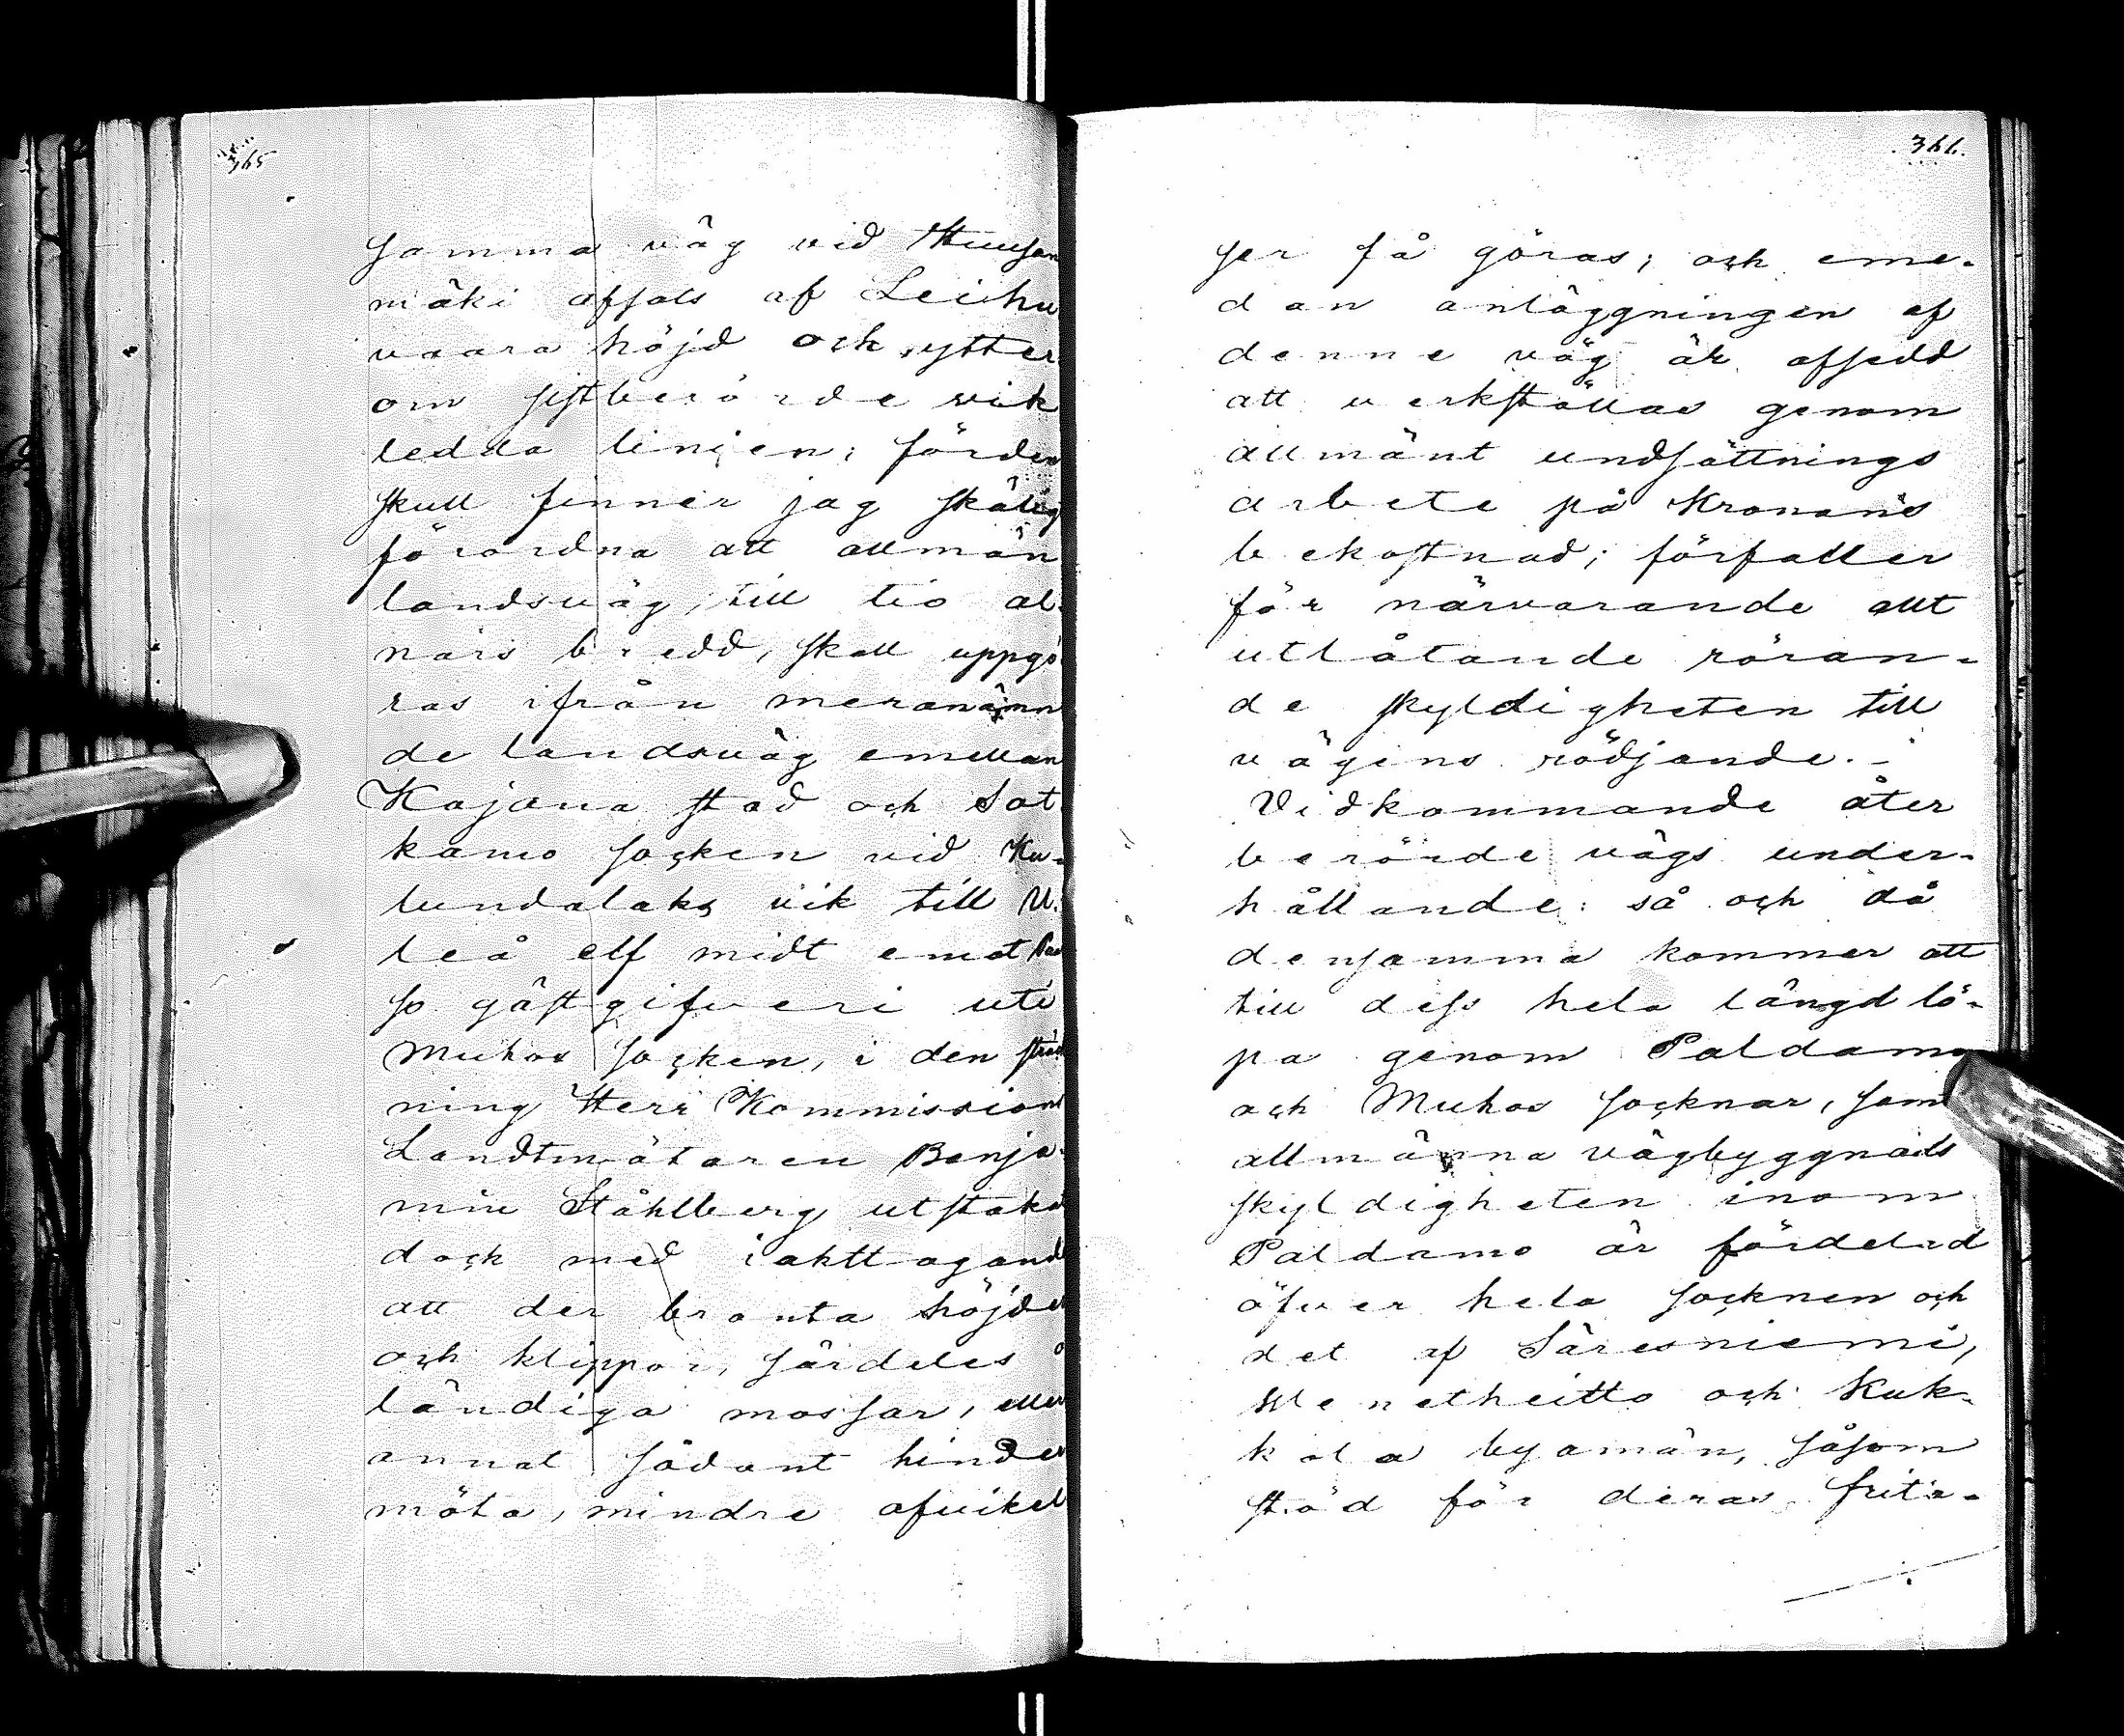 365
samma väg vid Huusan
mäki afsals af Leihu
vaara höjd och ytter
om sistberörde vik
ledda linien; förden
skull finner jag skälig
förordna att allmän
landsväg, till tio al-
nars bredd, skall uppgö
ras ifrån meranämn
de landsväg emellan
Kajana stad och Sot
kamo socken vid Ku-
lundalaks vik till U-
leå elf midt emot
so gästgifveri uti
Muhos socken, i den sträck
ning Herr Kommissions
Landtmätaren Benja-
min Ståhlberg utstakat
dock med iakttagande
att der branta höjder
och klippor, särdeles o
ländiga mossar, eller
annat sådant hinder
möta, mindre afvikel
366.
ser få göras; och eme-
dan anläggningen af
denne väg är afsedd
att verkställas genom
allmänt undsättnings
arbete på Kronans
bekostnad; förfaller
för närvarande allt
utlåtande röran-
de skyldigheten till
vägens rödjande. -
Vidkommande åter
berörde vägs under-
hållande: så och då
densamma kommer att
till dess hela längd lö-
pa genom Paldamo
och Muhos socknar, samt
allmänna vägbyggnads
skyldigheten inom
Paldamo är fördelad
öfver hela socknen och
det af Säresniemi,
Wenetheitto och Kuk-
kola byamän, såsom
stöd för deras frita-